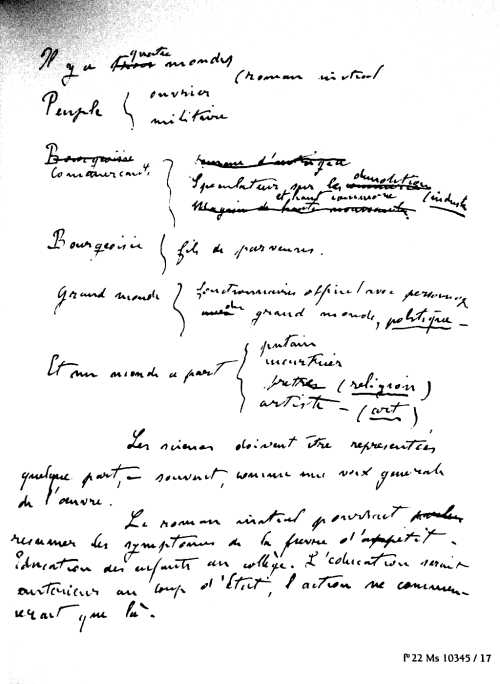 Il y a trois quatre mondes
(roman initial
Peuple { ouvrier
militaire
Bourgeoisie
Commerçants { romans d'intrigue
Spéculateurs sur les démolitions
et haut commerce (industr
Magasin de haute nouveauté
Bourgeoisie { fils de parvenus.
Grand monde { fonctionnaires officiel avec personnages
du grand monde, politique –
Et un monde à part { putain
meurtrier
prêtres (religion)
artiste – (art)
Les sciences doivent être représentées
quelque part, – souvent, comme une voix générale
de l'œuvre.
Le roman initial pourrait
résumer les symptômes de la fièvre d'appétit.
Éducation des enfants au collège. L'éducation serait
antérieure au coup d'État, l'action ne commen-
cerait que là.
f° 22 Ms 10345 / 17